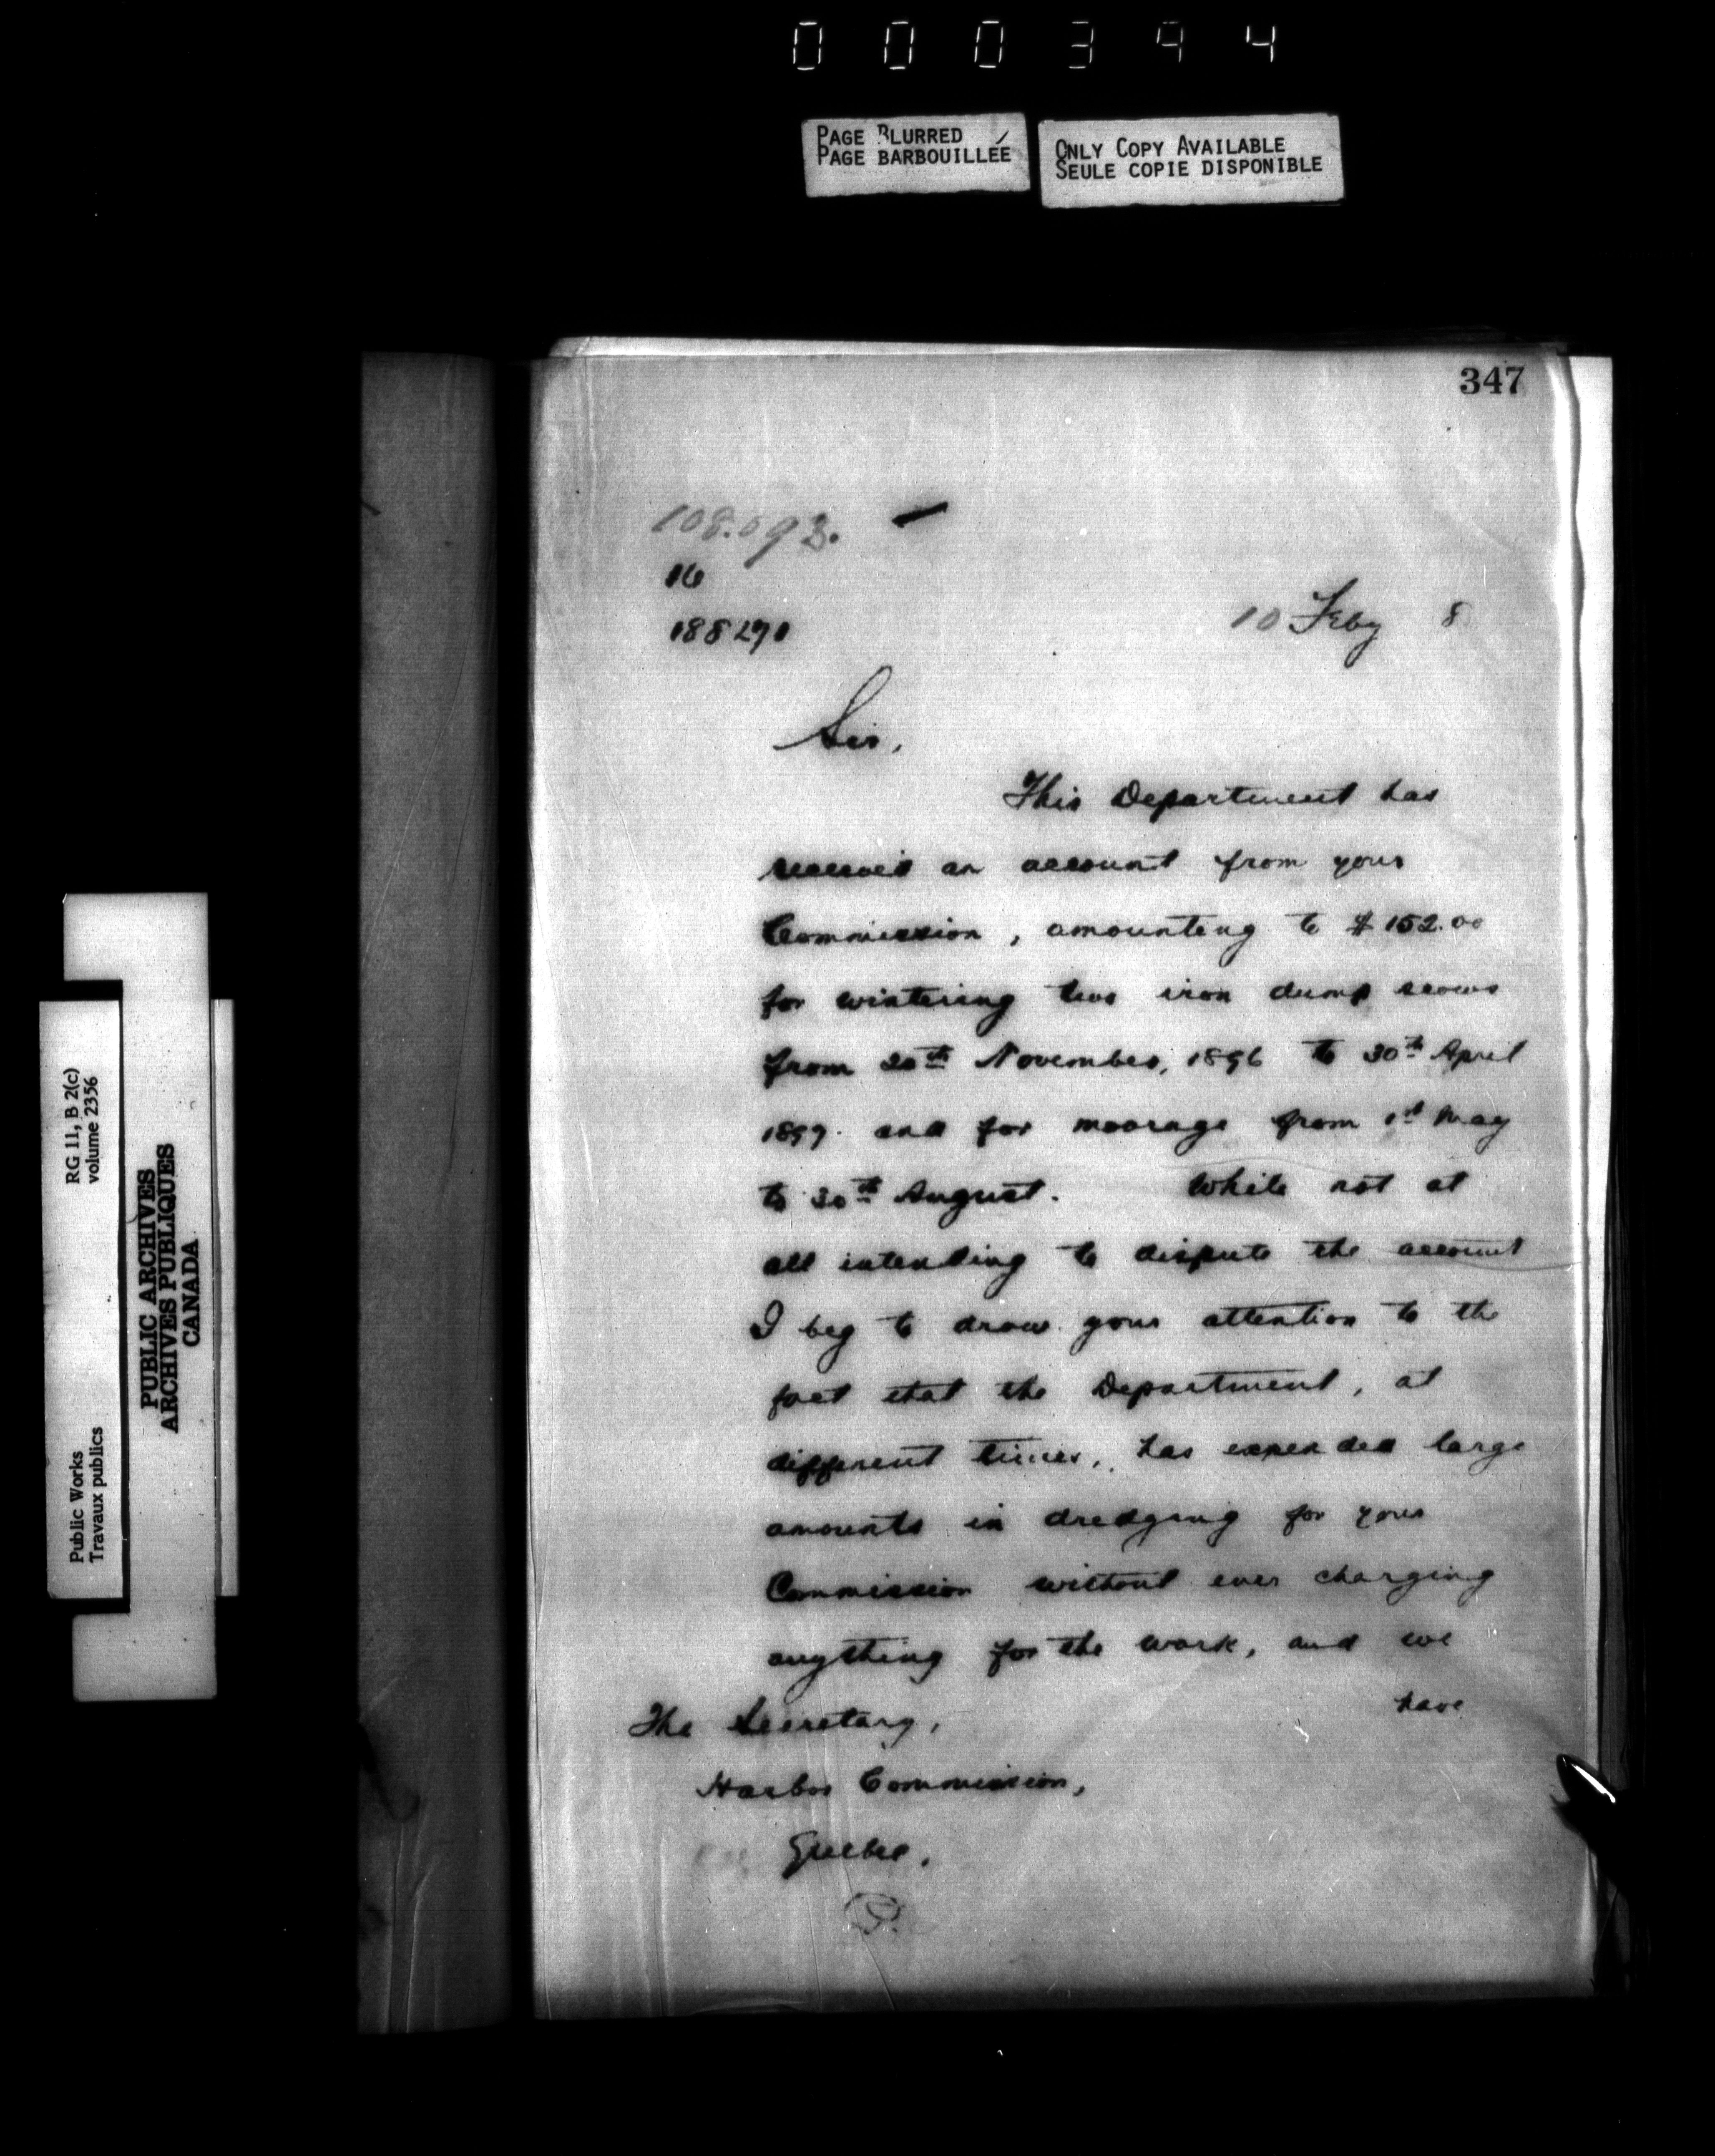 000394
PAGE BLURRED
PAGE BARBOUILLÉE
ONLY COPY AVAILABLE
SEULE COPIE DISPONIBLE
347
108.093.
16
188291
10 Feby 8
Sir,
This Department has
received an account from your
Commission, amounting to $152.00
for wintering two iron dump scows
from 20th November, 1896 to 30th April
1897. and for moorage from 1st May
to 30th August. While not at
all intending to dispute the account
I beg to draw your attention to the
fact that the Department, at
different times, has expended large
amounts in dredging for your
Commission without ever charging
anything for the work, and we
have
The Secretary,
Harbor Commission,
Quebec.
RG 11, B 2(c)
volume 2356
Public Works
Travaux publics
PUBLIC ARCHIVES
ARCHIVES PUBLIQUES
CANADA